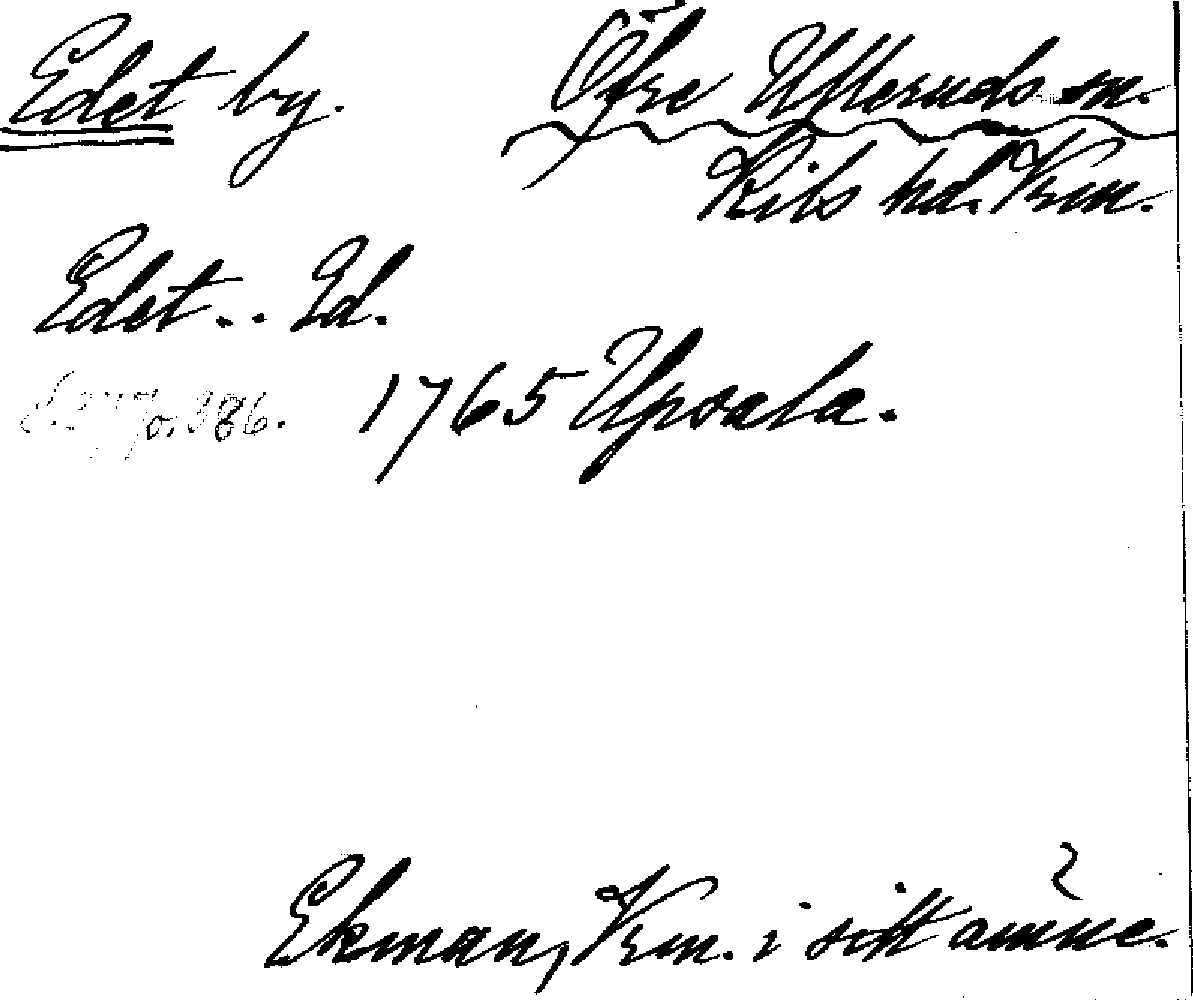 Edet by. Öfre Ulleruds sn.
Kils hd. Vrm.
Edet.. Ed.
s. 377 o. 386. 1765 Upsala.
Ekman, Vrm. i sitt ämne.